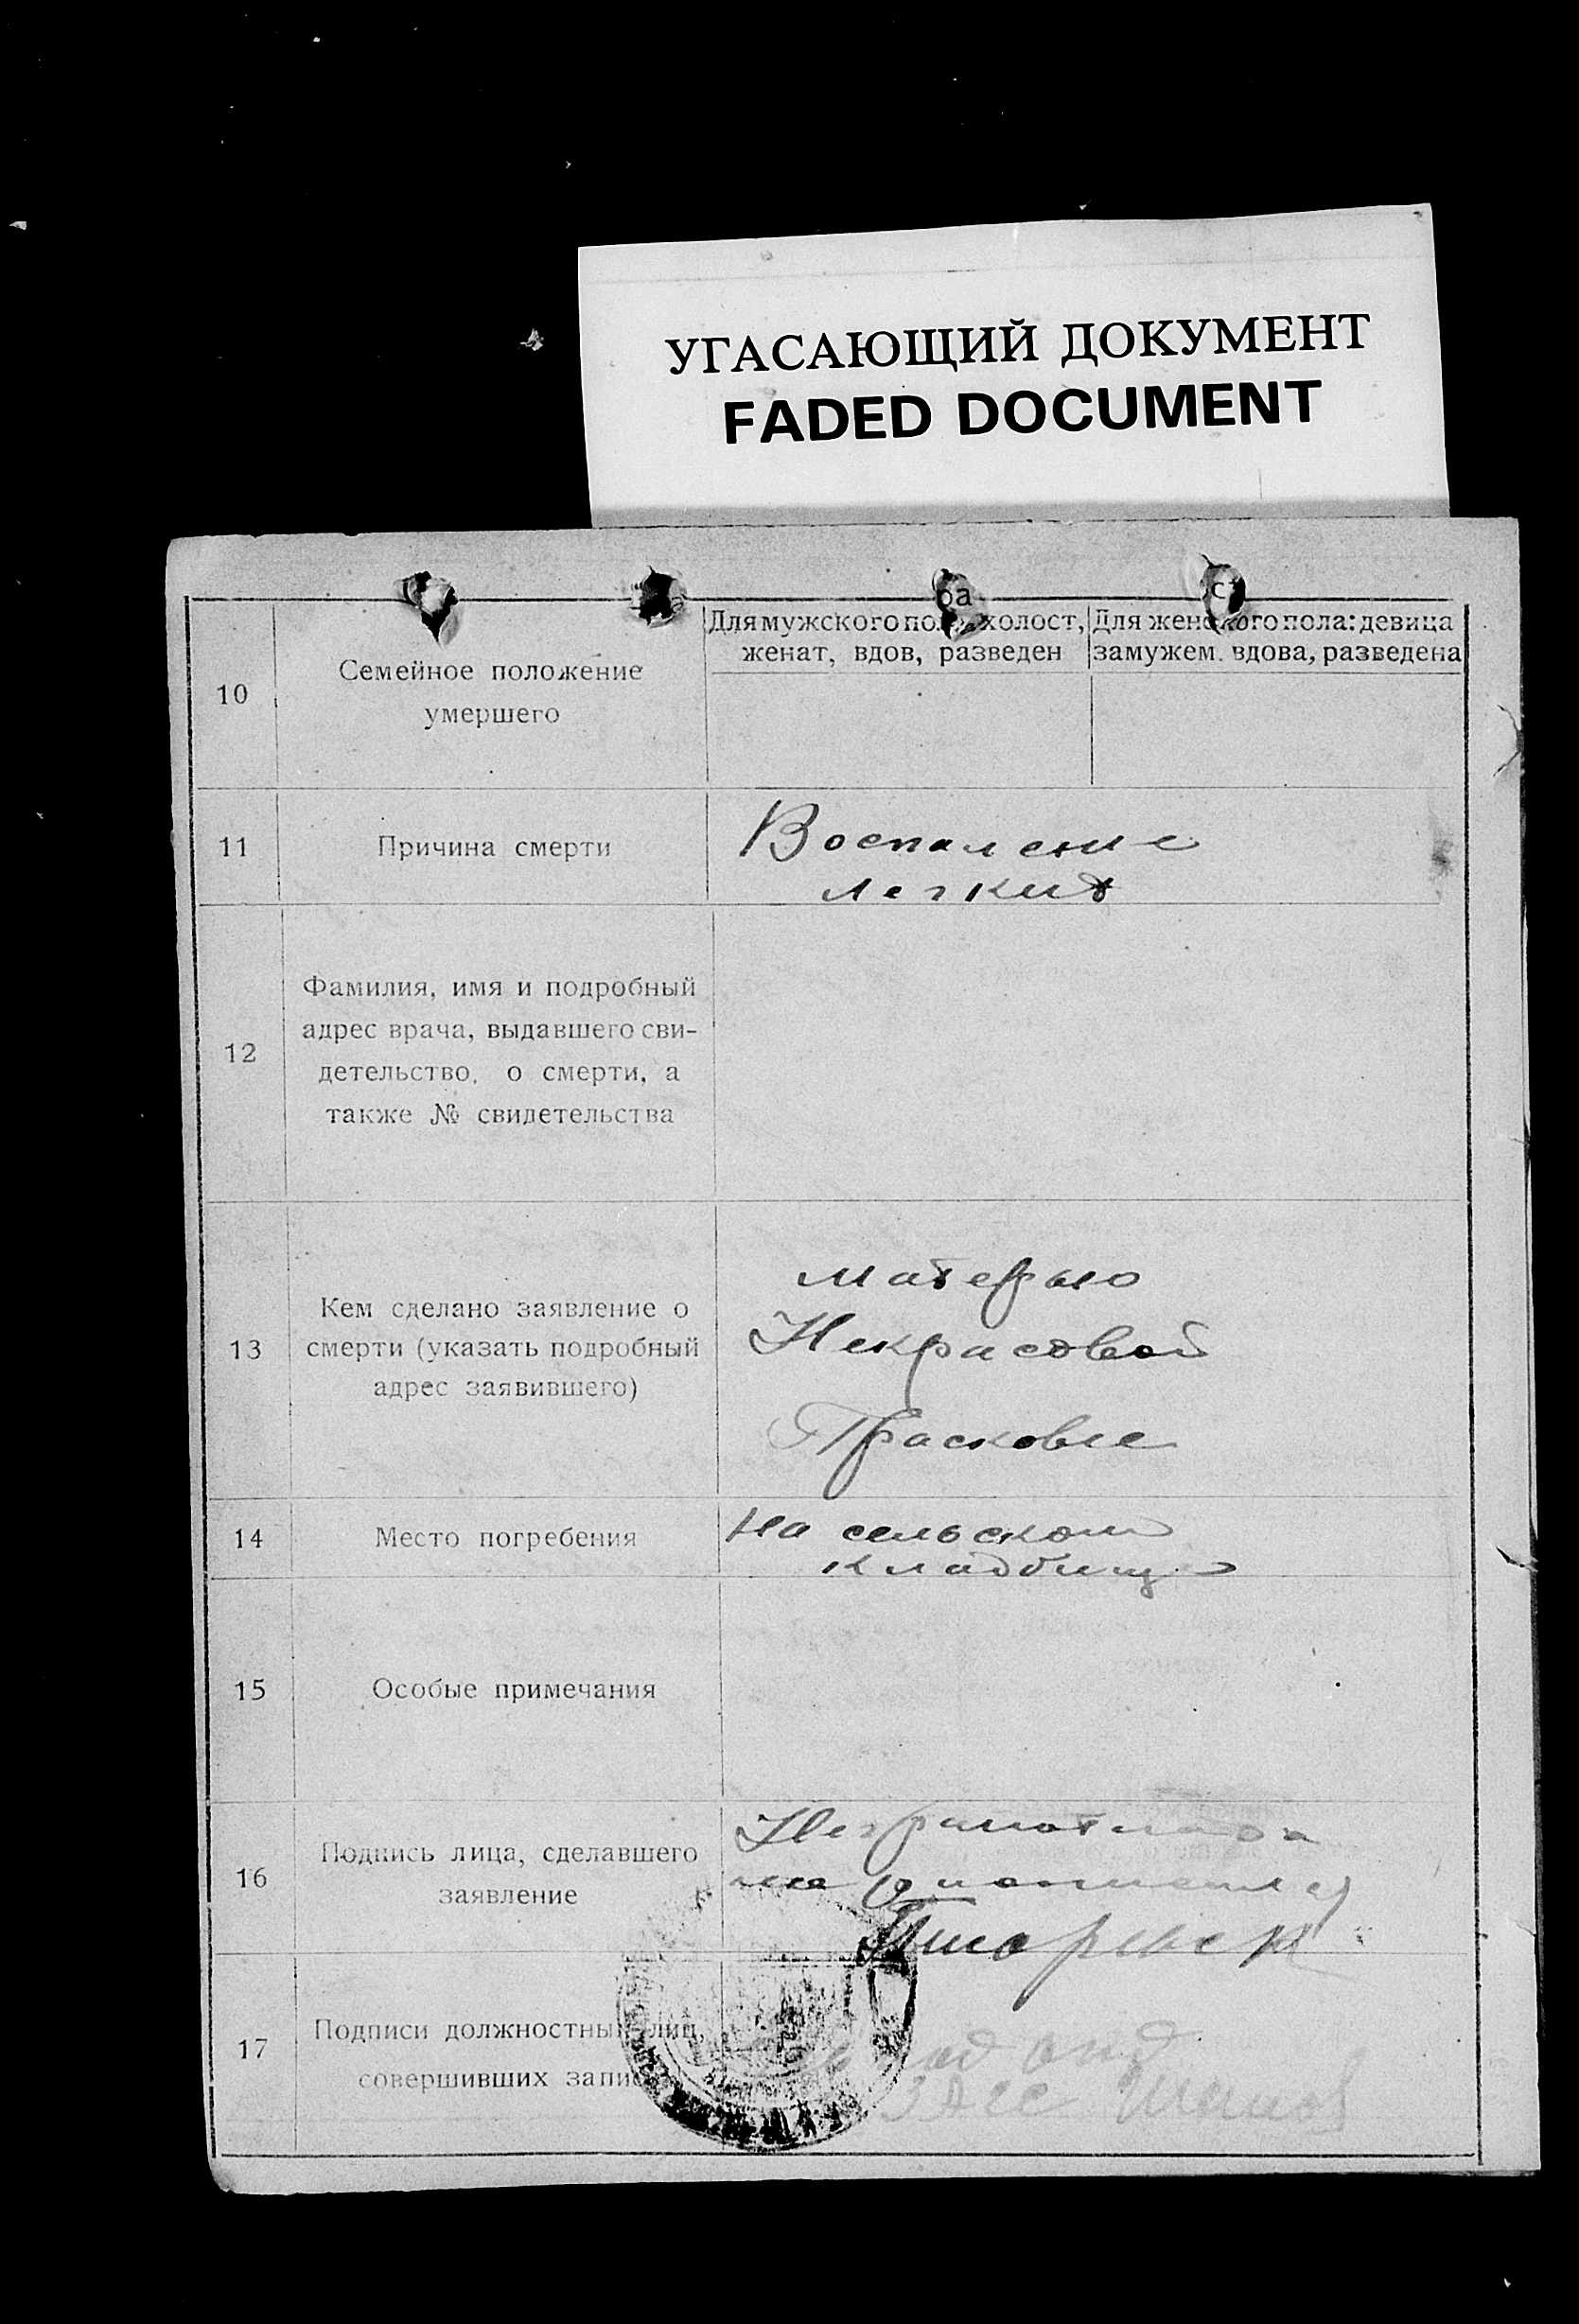 УГАСАЮЩИЙ ДОКУМЕНТ
FADED DOCUMENT
10
Семейное положение
умершего
Для мужского пола: холост,
женат, вдов, разведен
Для женского пола: девица
замужем. вдова, разведена
11
Причина смерти
Воспаление
легких
12
Фамилия, имя и подробный
адрес врача, выдавшего сви-
детельство, о смерти, а
также № свидетельства
13
Кем сделано заявление о
смерти (указать подробный
адрес заявившего)
матерью
Некрасовой
Прасковье
14
Место погребения
На сельском
кладбище
15
Особые примечания
16
Подпись лица, сделавшего
заявление
Неграмотная
17
Подписи должностных лиц,
совершивших запись
ЗАГС